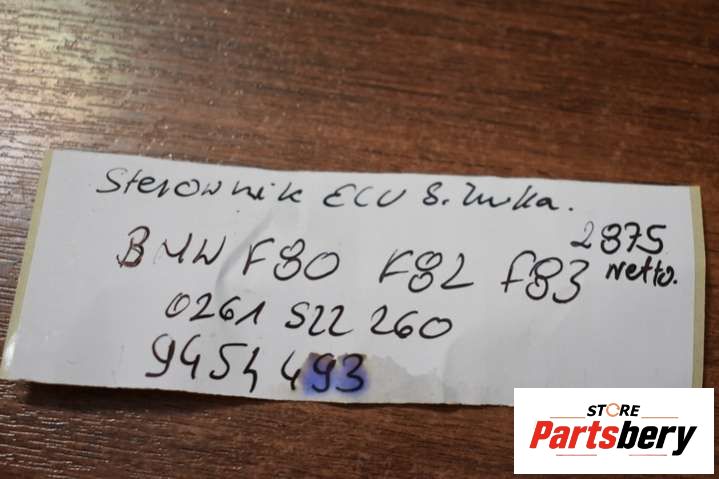 Sterownik ECU Silnika.
2875
BMW F80 F82 F83 netto.
0261 S22 260
9454493
STORE
Partsbery